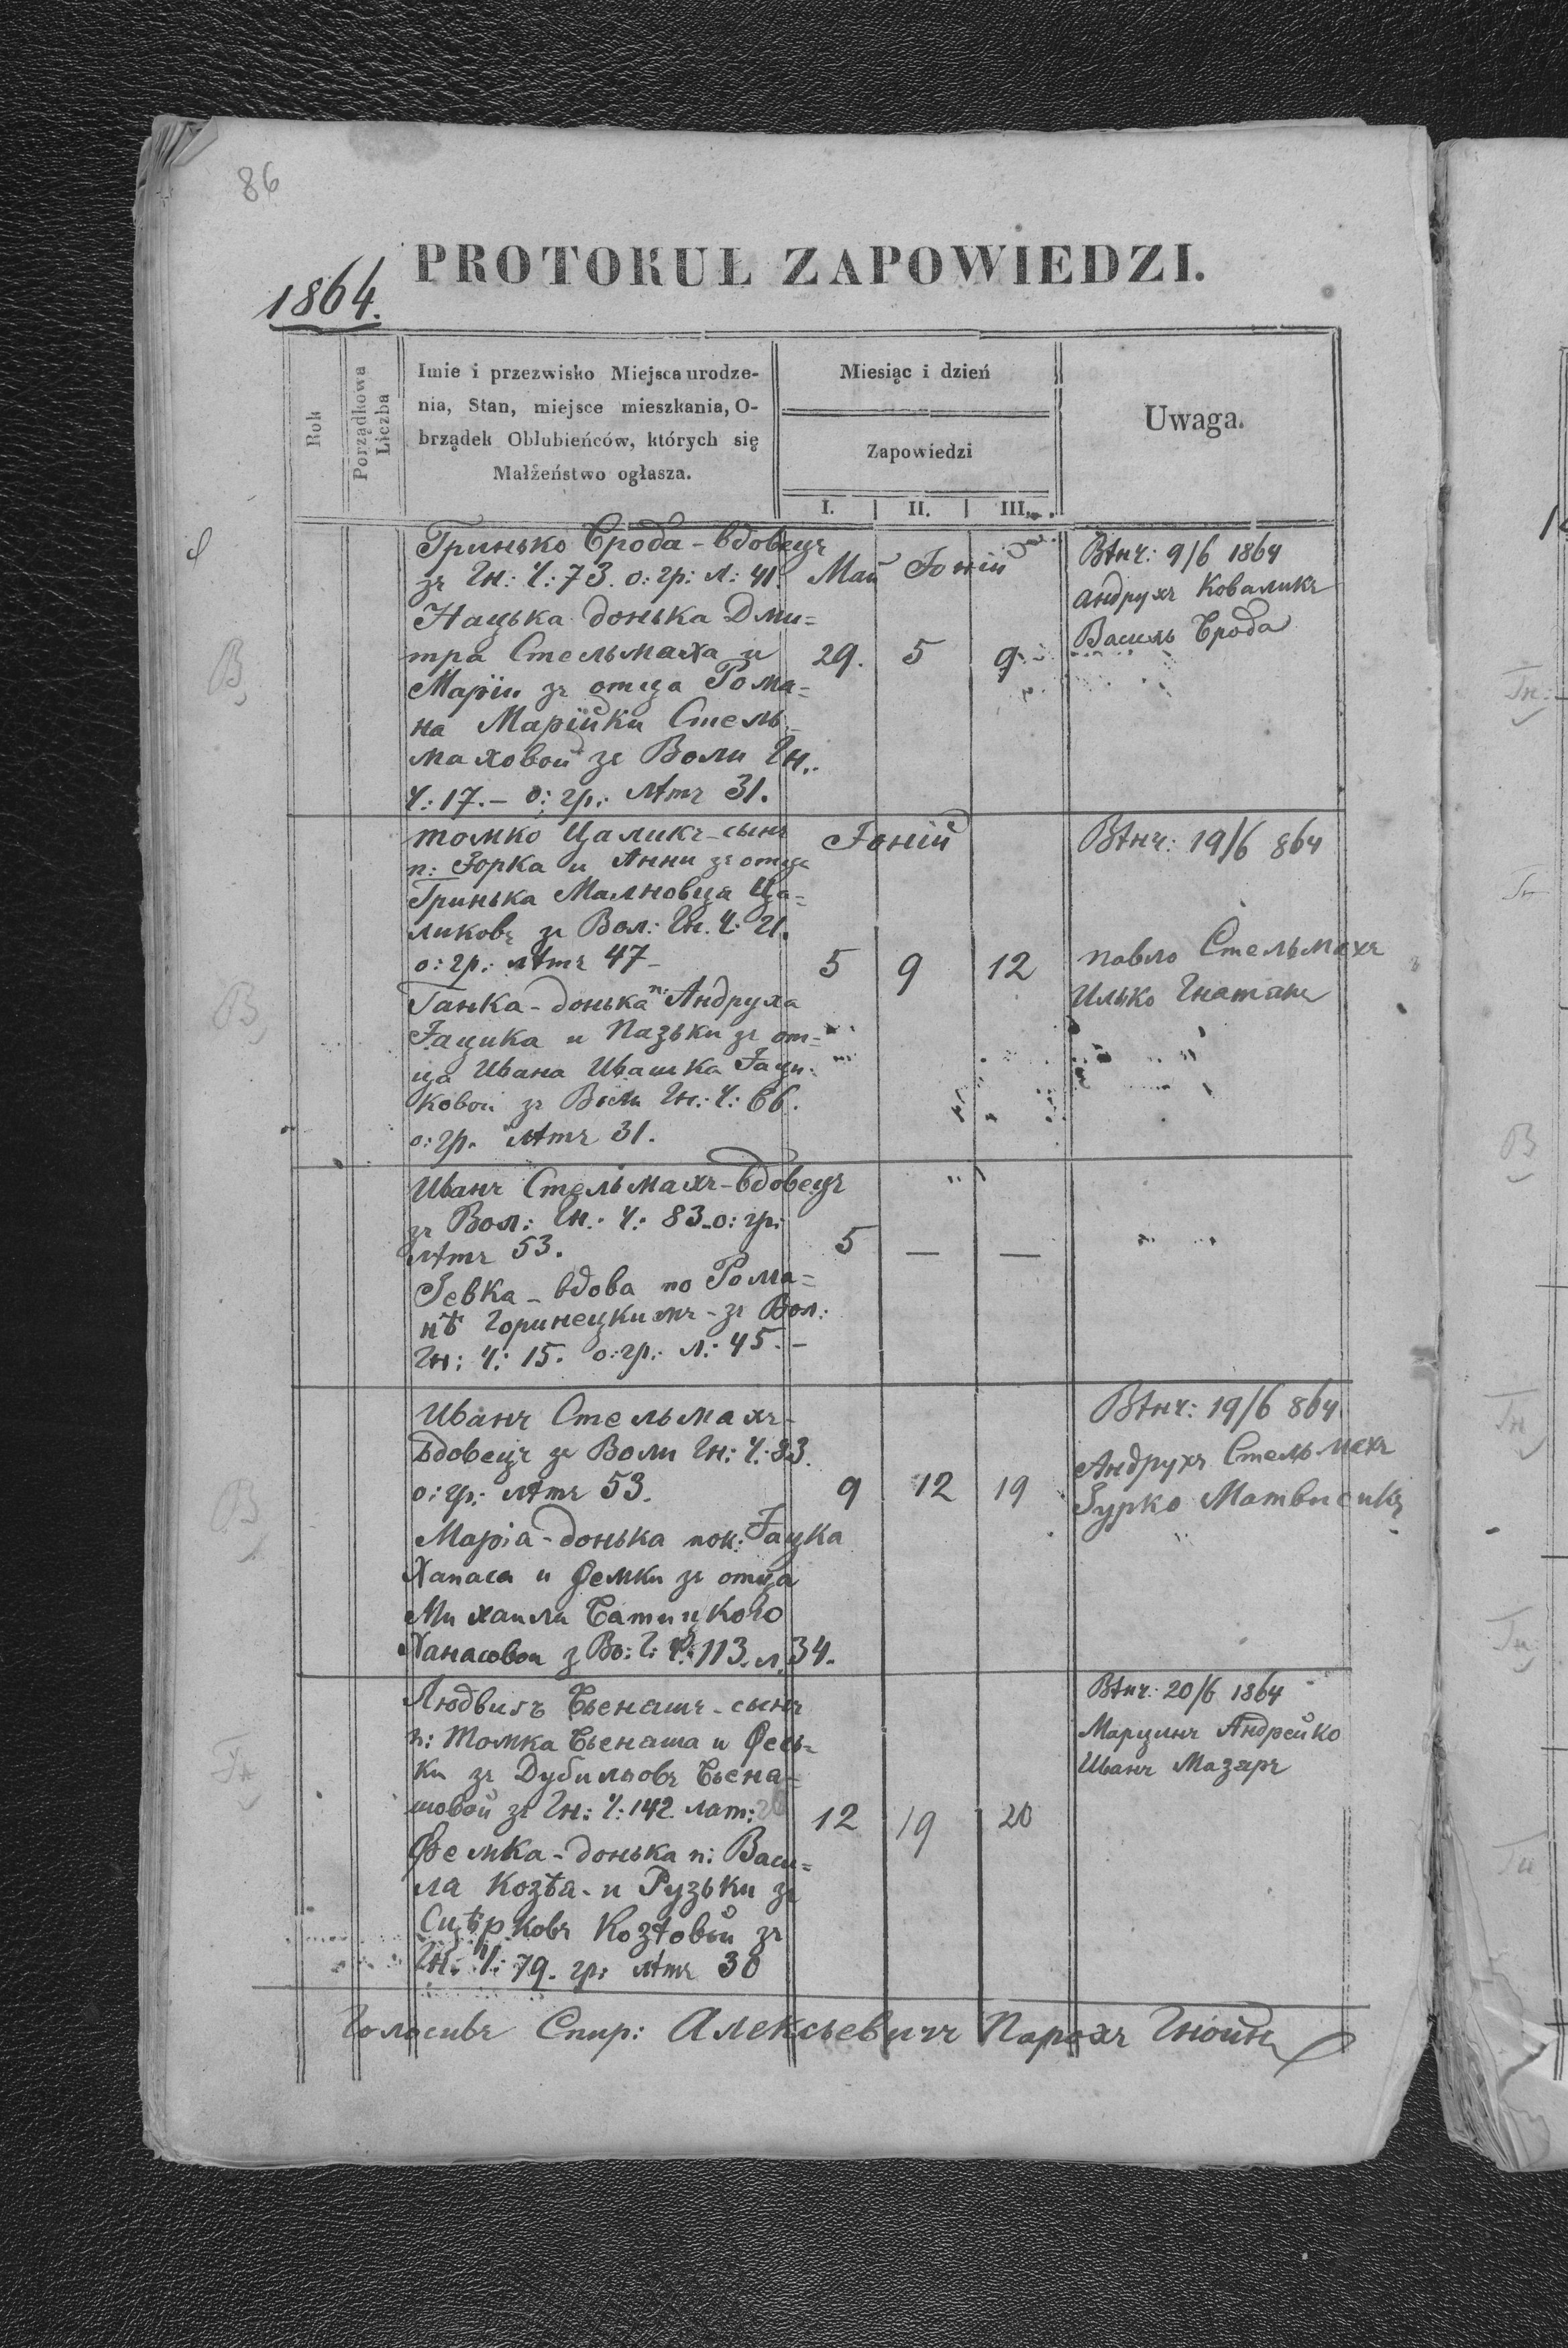 86
PROTOKUŁ ZAPOWIEDZI.
1864.
Rok
Porządkowa Liczba
Imie i przezwisko Miejsca urodze-
nia, Stan, miejsce mieszkania, O-
brządek Oblubieńców, których się
Małżeństwo ogłasza.
Miesiąc i dzień
Zapowiedzi
I. II. III.
Uwaga.
Гринько Брода - вдовецъ
зъ Гн: Ч: 73. о: гр: л: 41.
Нацька донька Дми=
тра Стельмаха и
Маріи зъ отца Рома=
на Марійки Стель=
маховои зъ Воли Гн.
Ч: 17. - о: гр: лѣтъ 31.
Май Іюній
29. 5 9
Вѣнч: 9/6 1864
Андрухъ Коваликъ
Василь Брода
В
Томко Цаликъ - сынъ
п: Юрка и Анни зъ отца
Гринька Ца=
ликовъ зъ Вол: Гн. Ч: 21.
о: гр: лѣтъ 47 -
Ганка - донька п: Андруха
Яцика и Пазьки зъ от=
ца Ивана Ивашка Яци-
ковои зъ Воли Гн: Ч: 66.
о: гр. лѣтъ 31.
Іюній
5 9 12
Вѣнч: 19/6 864
Павло Стельмахъ
Илько
В
Иванъ Стельмахъ - вдовецъ
зъ Вол: Гн: Ч: 83 - о: гр:
лѣтъ 53.
Евка - вдова по Рома=
нѣ Горинецкимъ - зъ Вол:
Гн: Ч: 15. о: гр: л: 45. -
5 — —
Иванъ Стельмахъ -
вдовецъ зъ Воли Гн: Ч: 83.
о: гр: лѣтъ 53.
Марія - донька пок: Яцка
Ханаса и Фемки зъ отца
Михаила Батицкого
Ханасовои з Во: Г: Ч: 113. л. 34.
9 12 19
Вѣнч: 19/6 864
Андрухъ Стельмахъ
Юрко
В
Людвигъ Бьенашъ - сынъ
п: Томка Бьенаша и Фесь=
ки зъ Дубильовъ Бьена=
шовой зъ Гн: Ч: 142 лат:
Фемка - донька п: Васи=
ля Козѣя - и Рузьки зъ
Сицѣрковъ Козѣовой зъ
Гн. Ч: 79. гр: лѣтъ 30
12 19 20
Вѣнч: 20/6 1864
Марцинъ Андрейко
Иванъ Мазаръ
Гн
Голосивъ Спир: Алексѣевичъ Парохъ